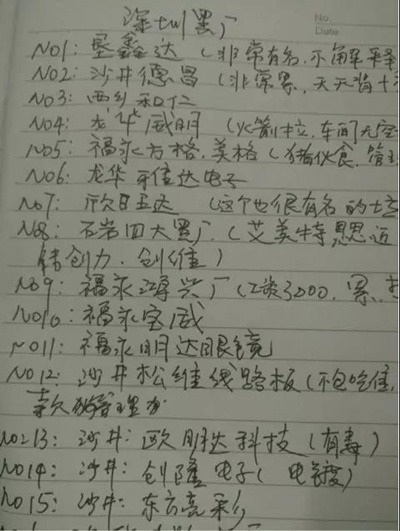 深圳黑厂
No.
Date
No1: 星鑫达 (非常有名,不解释
No2: 沙井德昌 (非常累,天天背
No3: 西乡和仁
No4: 龙华威朋 (火箭位,车间无空
No5: 福永方格,美格 (猪伙食,管
No6: 龙华千佳达电子
No7: 欣旺达 (这个也很有名的
No8: 石岩四大黑厂 (艾美特,思迈
伟创力,创维)
No9: 福永鸿兴厂 (工资3000,累,
No10: 福永宝威
No11: 福永明达眼镜
No12: 沙井松维线路板 (不包吃住,
No13: 沙井: 欧朋达科技 (有毒)
No14: 沙井: 创隆电子 (电镀)
No15: 沙井: 东方亮彩